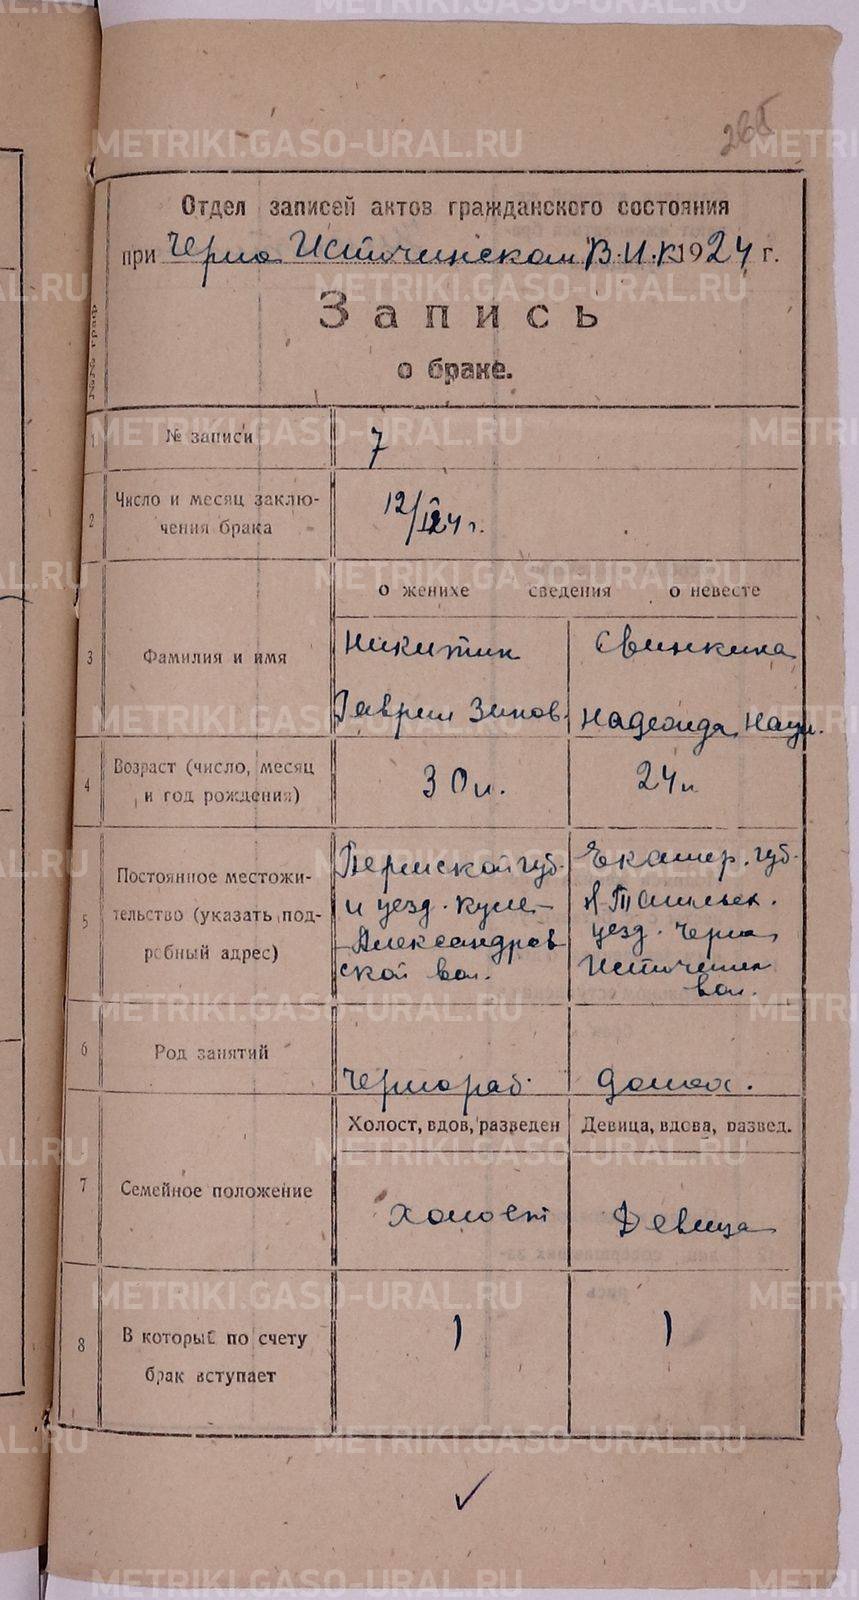 Отдел записей актов гражданского состояния
при Черно Источинском В.И.К 1924 г.
Запись
о браке.
№№ граф
1 № записи 7
2 Число и месяц заключения брака 12/ 24 г.
о женихе сведения о невесте
3 Фамилия и имя
Никитин Свинкина
Гаврил Зинов. Надежда Наум.
4 Возраст (число, месяц и год рождения) 30 л. 24 л
5 Постоянное местожительство (указать подробный адрес)
Пермской губ. Екатер. губ.
и уезд. Куле- Н-Тагильск.
Александров уезд. Черно
ской вол. Источинск
вол.
6 Род занятий Чернораб. домох.
Холост, вдов, разведен Девица, вдова, развед.
7 Семейное положение холост Девица
8 В который по счету брак вступает 1 1
METRIKI.GASO-URAL.RU